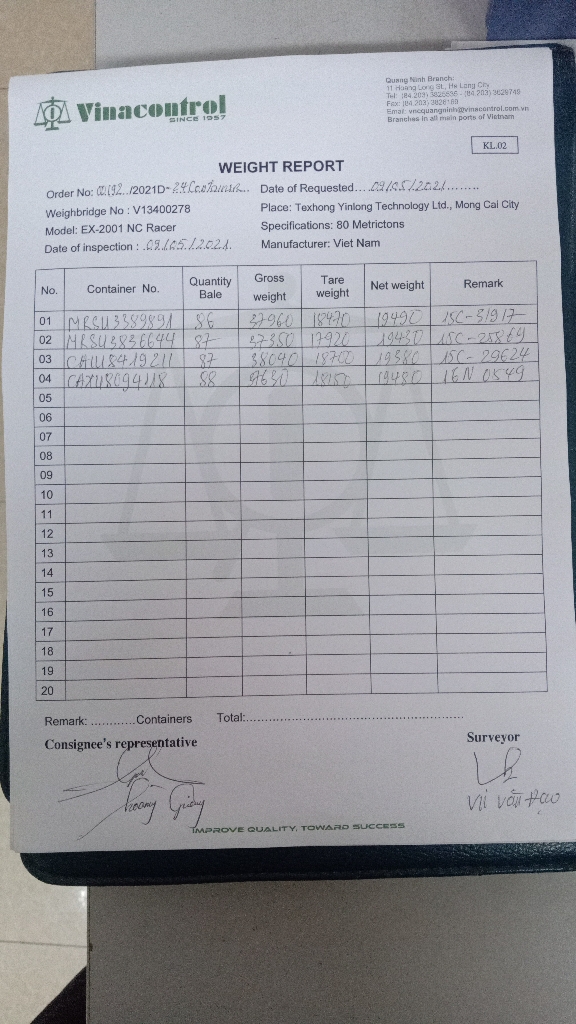 Vinacontrol
SINCE 1957
Quang Ninh Branch:
11 Hoang Long St., Ha Long City
Tel: (84.203) 3825556 - (84.203) 3829749
Fax: (84.203) 3828169
Email: vncquangninh@vinacontrol.com.vn
Branches in all main ports of Vietnam
KL.02
WEIGHT REPORT
Order No: /2021D- Date of Requested....09/05/2021.........
Weighbridge No : V13400278 Place: Texhong Yinlong Technology Ltd., Mong Cai City
Model: EX-2001 NC Racer Specifications: 80 Metrictons
Date of inspection : 09/05/2021 Manufacturer: Viet Nam
No. Container No. Quantity Bale Gross weight Tare weight Net weight Remark
01 MRSU3389891 86 37960 18470 19490 15C-31917
02 MRSU3836644 87 37350 17920 19430 15C-25869
03 CAIU8419211 87 38090 18700 19380 15C-29624
04 CAXU8094118 88 37630 18150 19480 16N 0549
05
06
07
08
09
10
11
12
13
14
15
16
17
18
19
20
Remark: ............Containers Total:..........................................................
Consignee's representative Surveyor
Hoàng Giang Vũ Văn Đạo
IMPROVE QUALITY, TOWARD SUCCESS